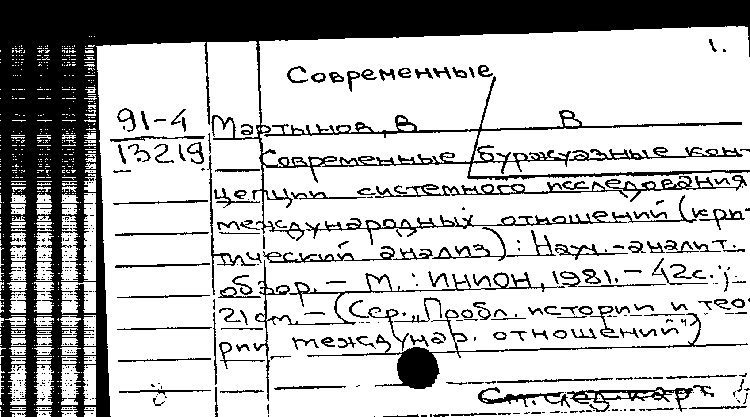 1.
Современные
91-4 Мартынов, В В
13219 Современные буржуазные кон-
цепции системного исследования
международных отношений (кри-
тический анализ) : Науч.-аналит.
обзор. — М. : ИНИОН, 1981. — 42 с. ;
21 см. — (Сер. „Пробл. истории и тео-
рии междунар. отношений")
См. след. карт.